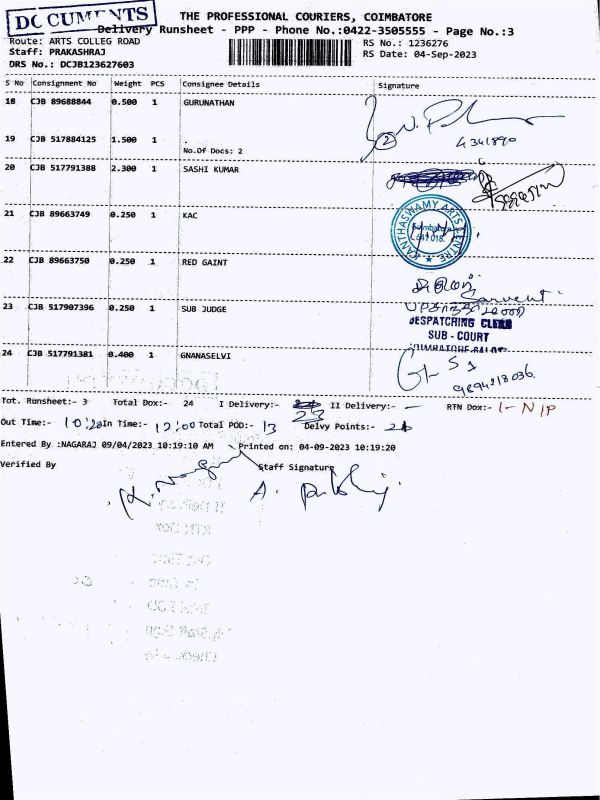 DOCUMENTS
THE PROFESSIONAL COURIERS, COIMBATORE
Delivery Runsheet - PPP - Phone No.:0422-3505555 - Page No.:3
Route: ARTS COLLEG ROAD
RS No.: 1236276
Staff: PRAKASHRAJ
RS Date: 04-Sep-2023
DRS No.: DCJB123627603
S No Consignment No Weight PCS Consignee Details Signature
18 CJB 89688844 0.500 1 GURUNATHAN
19 CJB 517884125 1.500 1 .
No.Of Docs: 2
2
20 CJB 517791388 2.300 1 SASHI KUMAR
KANTHASWAMY ARTS CENTRE
Coimbatore
641 018.
21 CJB 89663749 0.250 1 KAC
22 CJB 89663750 0.250 1 RED GAINT
23 CJB 517907396 0.250 1 SUB JUDGE
DESPATCHING CLERK
SUB - COURT
24 CJB 517791381 0.400 1 GNANASELVI
9894218036
Tot. Runsheet:- 3 Total Dox:- 24 I Delivery:- 23 II Delivery:- — RTN Dox:- 1- N/P
Out Time:- 10:20 In Time:- 12:00 Total POD:- 13 Delvy Points:-
Entered By :NAGARAJ 09/04/2023 10:19:10 AM Printed on: 04-09-2023 10:19:20
Verified By Staff Signature